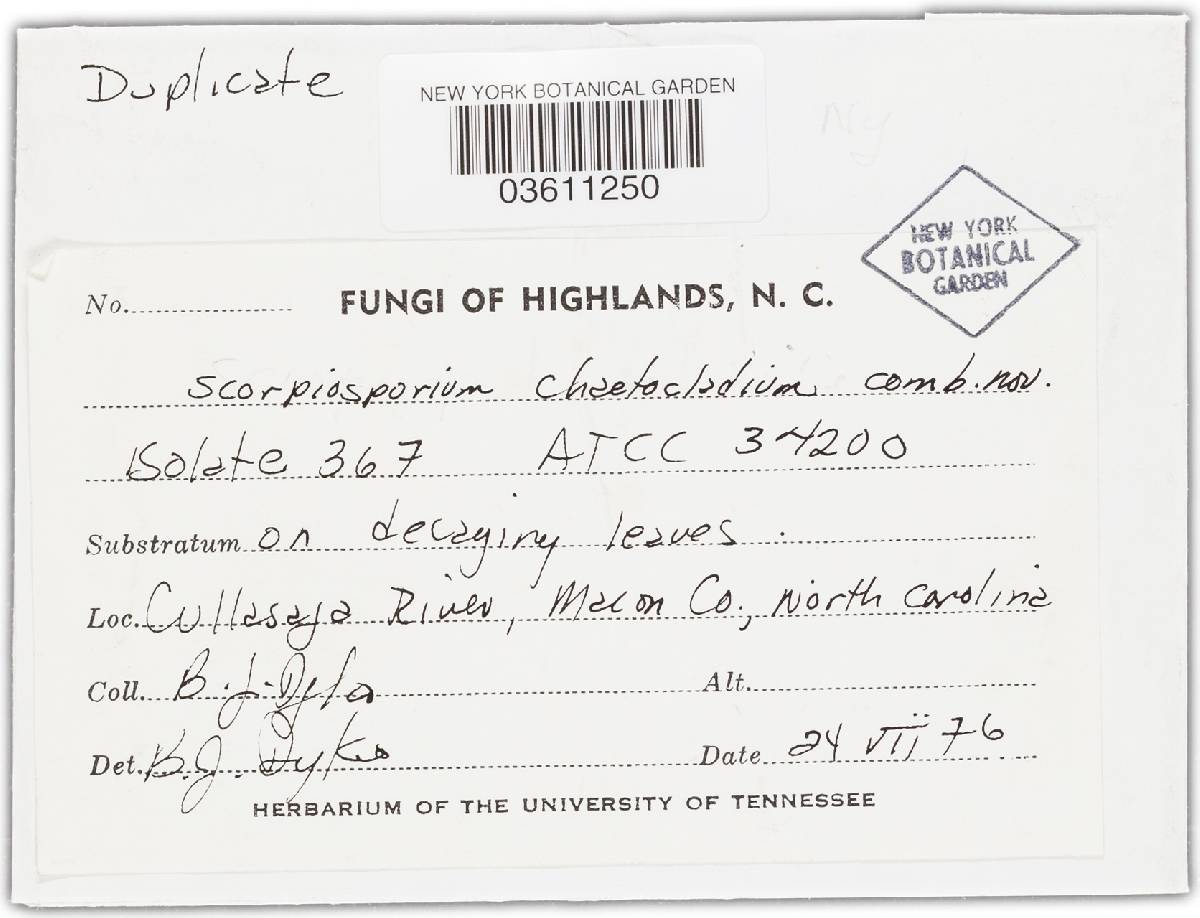 Duplicate
NEW YORK BOTANICAL GARDEN
03611250
Ny
NEW YORK
BOTANICAL
GARDEN
No. FUNGI OF HIGHLANDS, N. C.
Scorpiosporium chaetocladium comb. nov.
Isolate 367 ATCC 34200
Substratum on decaying leaves.
Loc. Cullasaja River, Macon Co., North Carolina
Coll. B. J. Dyko Alt.
Det. B. J. Dyko Date 24 VII 76
HERBARIUM OF THE UNIVERSITY OF TENNESSEE